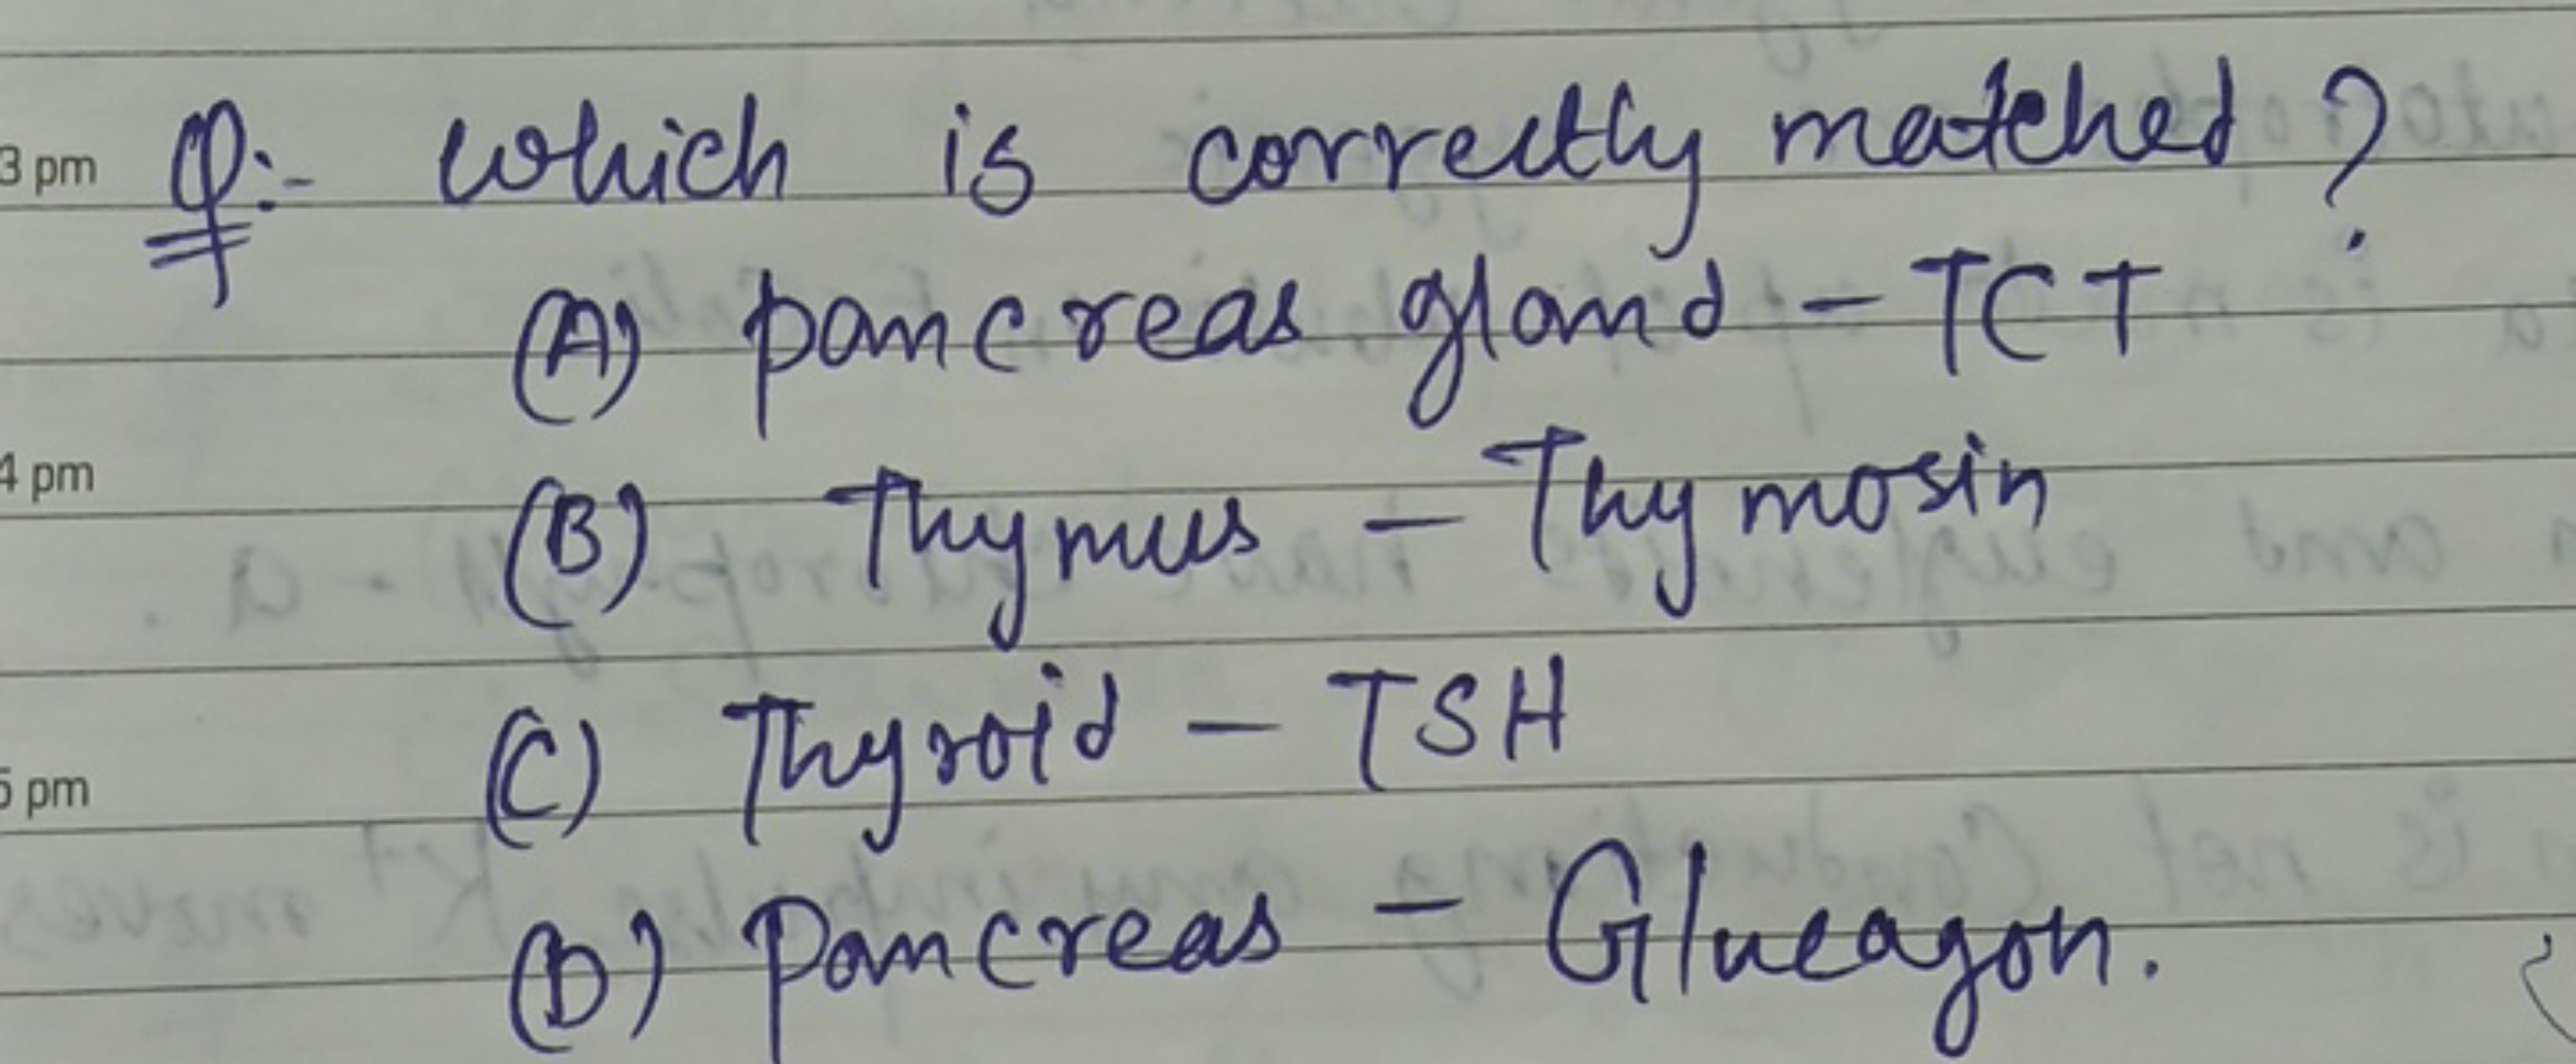 3 pm Q:- which is correctly matched ?
(A) pancreas gland - TCT
4 pm
(B) Thymus - Thymosin
(C) Thyroid - TSH
5 pm
(D) pancreas - Glucagon.